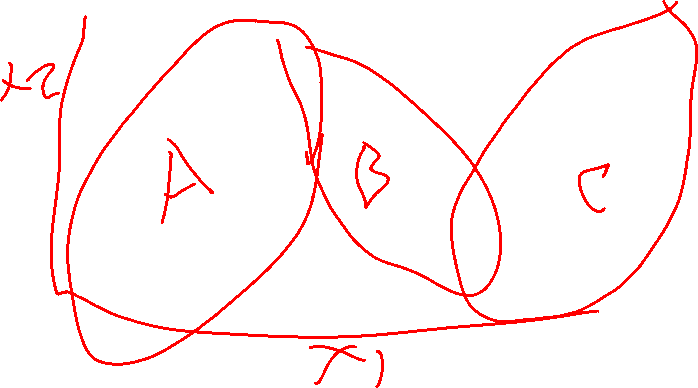 x2
A
B
C
x1